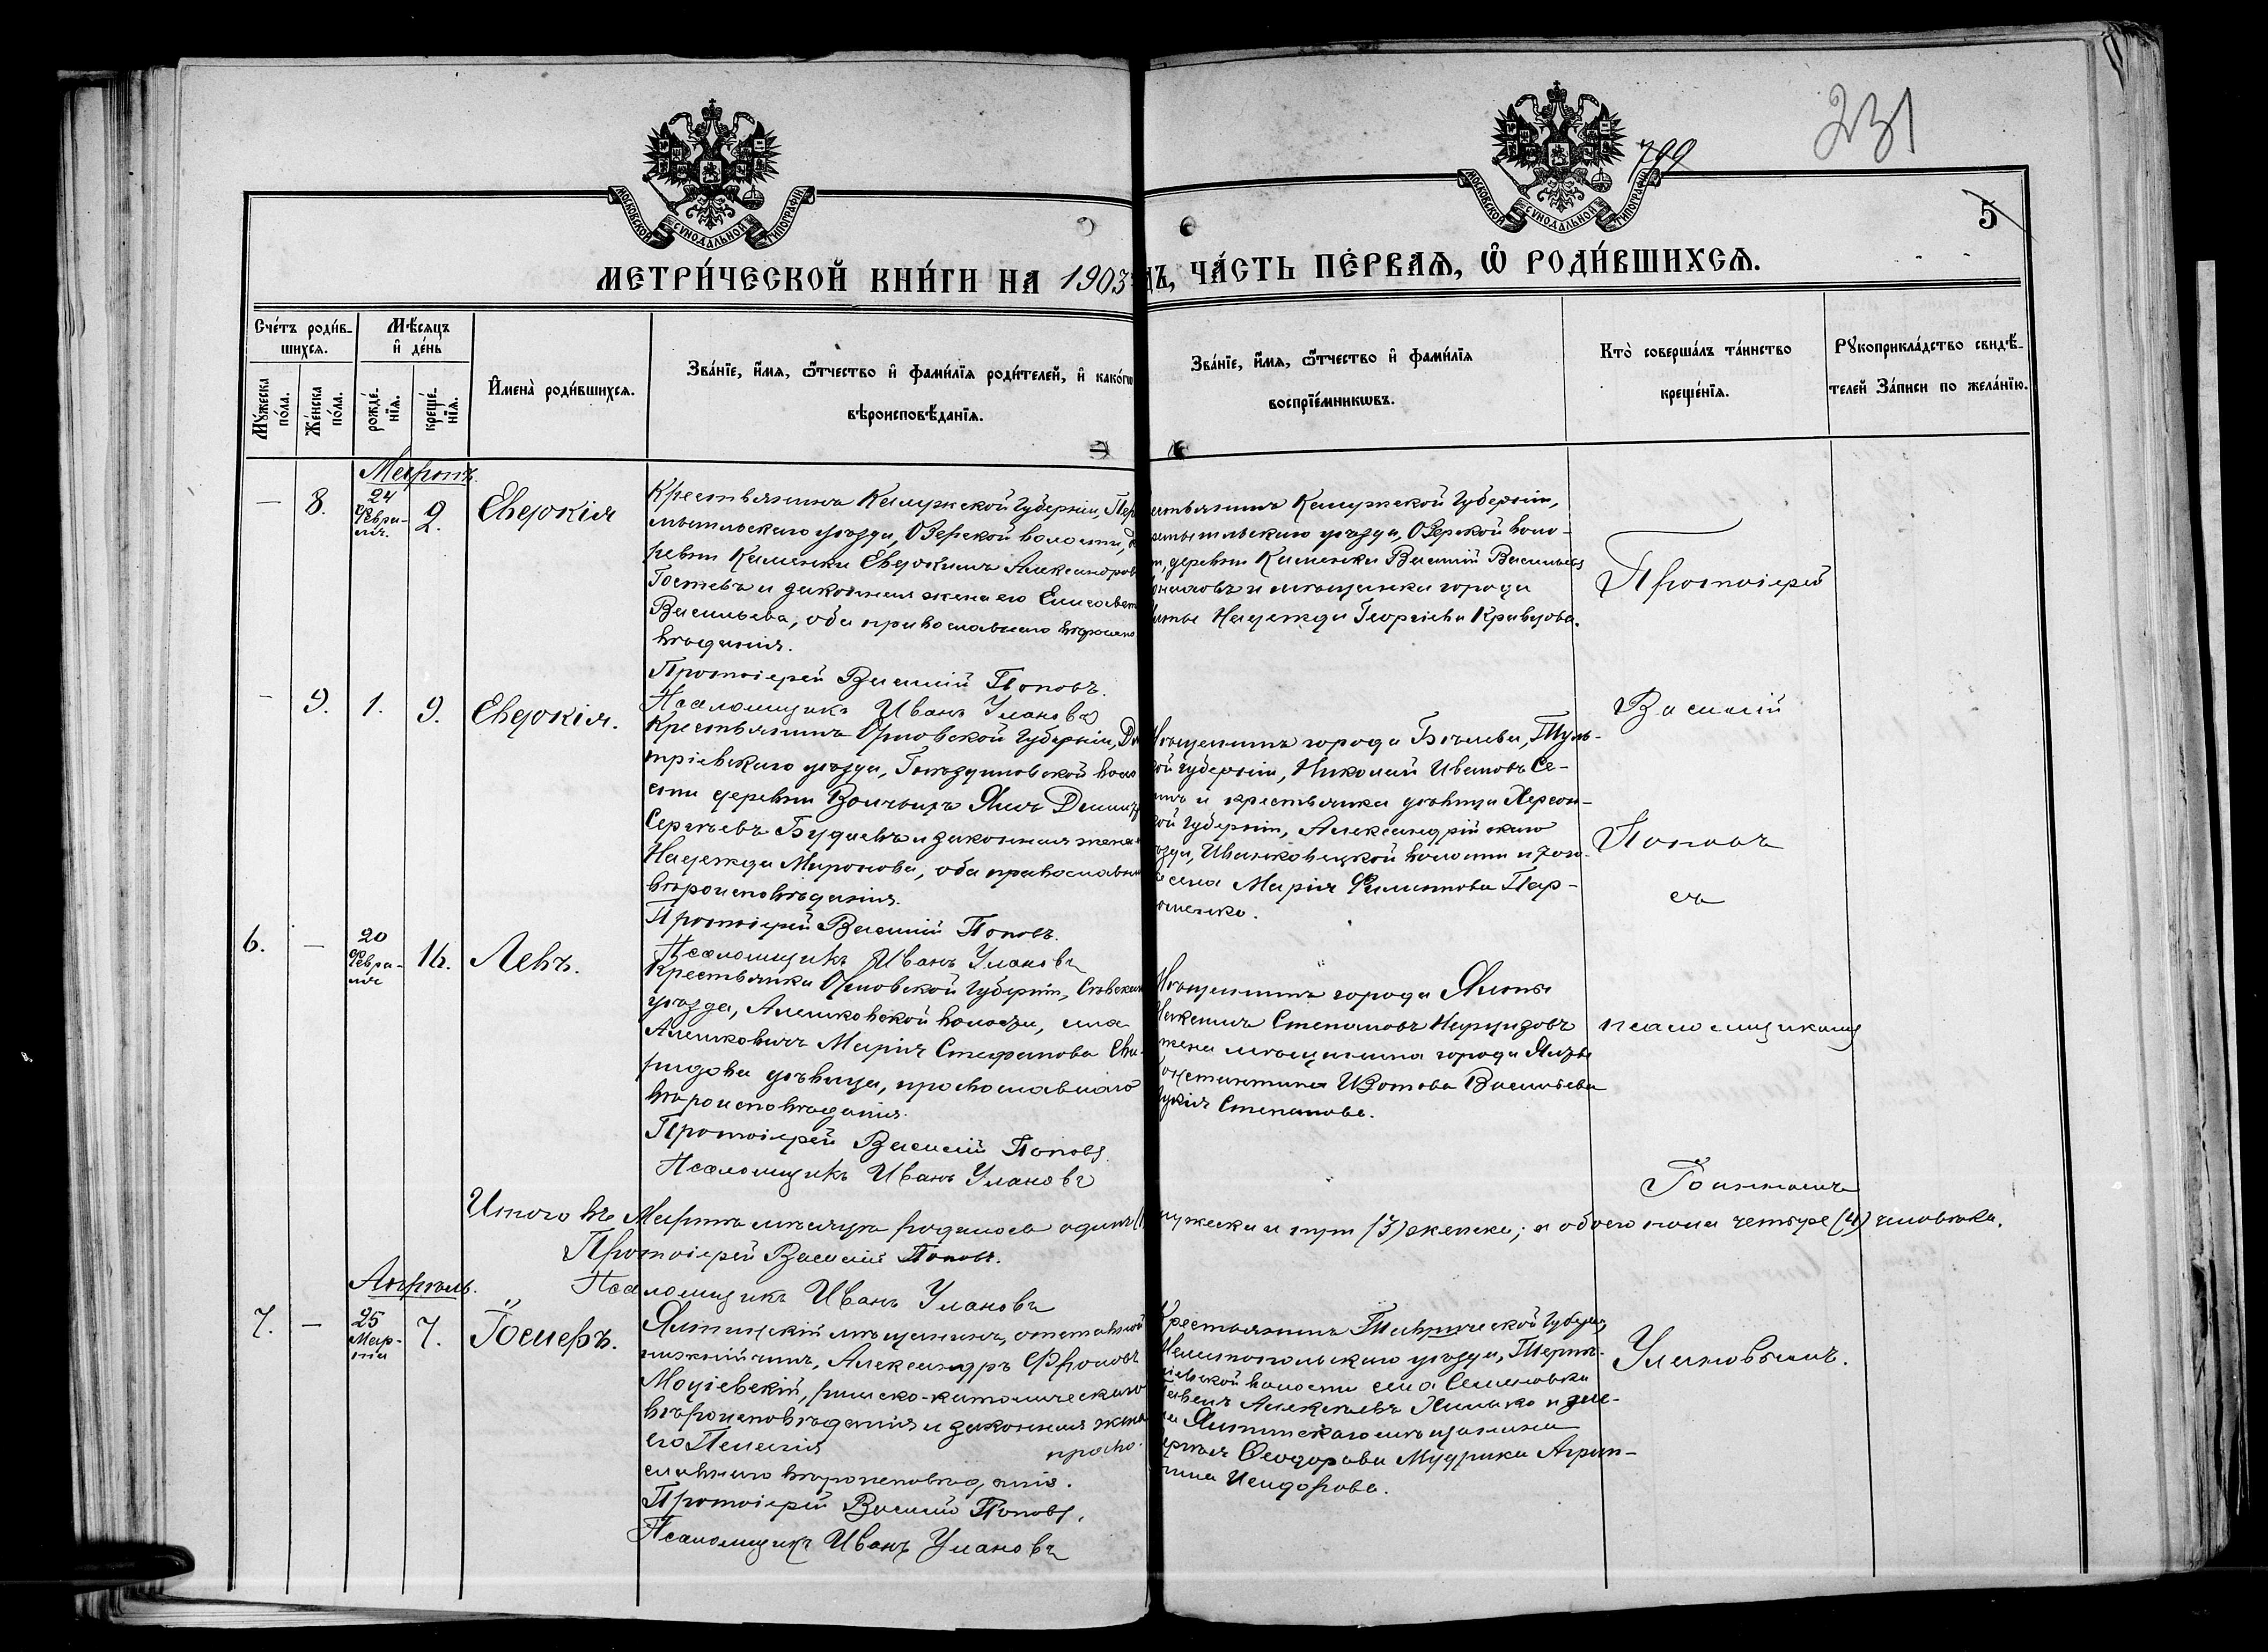 231
799
МОСКОВСКОЙ СѴНОДАЛЬНОЙ ТИПОГРАФІИ
МОСКОВСКОЙ СѴНОДАЛЬНОЙ ТИПОГРАФІИ
5
МЕТРИ́ЧЕСКОЙ КНИ́ГИ НА 1903 ДЪ, ЧА́СТЬ ПЕ́РВАѦ, Ѡ҆ РОДИ́ВШИХСѦ.
Сче́тъ роди́в-
шихсѧ.
Мѣ́сѧцъ
и҆ де́нь
Му́жеска
по́ла.
Же́нска
по́ла.
рожде́-
нїѧ.
креще́-
нїѧ.
И҆мена̀ роди́вшихсѧ.
Зва́нїе, и҆́мѧ, ѻ҆́тчество и҆ фами́лїѧ роди́телей, и҆ како́гѡ
вѣроисповѣ́данїѧ.
Зва́нїе, и҆́мѧ, ѻ҆́тчество и҆ фами́лїѧ
воспрїе́мникѡвъ.
Кто̀ соверша́лъ та́инство
креще́нїѧ.
Рꙋкоприкла́дство свидѣ́-
телей за́писи по жела́нїю.
Мартъ.
— 8. 24 Февра-
ля. 2. Евдокія
Крестьянинъ Калужской Губерніи, Пере
мышльскаго уѣзда, Озерской волости, де
ревни Каменки Евдокимъ Александровъ
Гостевъ и законная жена его Елисавета
Васильева, оба православнаго вѣроиспо
вѣданія.
Протоіерей Василій Поповъ.
Псаломщикъ Иванъ Улановъ
естьянинъ Калужской Губерніи,
емышльскаго уѣзда, Озерской воло-
и, деревни Каменки Василій Васильевъ
и мѣщанка города
Ялты Надежда Георгіева Кравцова.
Протоіерей
Василій
Поповъ
съ
псаломщикомъ
Іоанномъ
Улановымъ.
— 9. 1. 9. Евдокія.
Крестьянинъ Орловской Губерніи, Дми
тріевскаго уѣзда, воло
сти деревни Волчьихъ Ямъ Димитр
Сергѣевъ и законная жена его
Надежда Миронова, оба православнаго
вѣроисповѣданія.
Протоіерей Василій Поповъ.
Псаломщикъ Иванъ Улановъ
Мѣщанинъ города Бѣлева, Туль-
ской губерніи, Николай Ивановъ Се-
инъ и крестьянка дѣвица Херсон-
ской Губерніи, Александрійскаго
уѣзда, волости и того
же села Марія Филиппова Пар-
хоменко.
6. — 20
Февра-
ля 16. Левъ.
Крестьянка Орловской Губерніи, Сѣвскаго
уѣзда, Алешковской волости, села
Алешковичъ Марія Стефанова Сви-
ридова дѣвица, православнаго
вѣроисповѣданія.
Протоіерей Василій Поповъ
Псаломщикъ Иванъ Улановъ
Мѣщанинъ города Ялты
Степановъ
жена мѣщанина города Ялты
Константина Васильева
Степанова.
Итого въ Мартѣ мѣсяцѣ родилось одинъ (1) мужеска и три (3) женска; а обоего пола четыре (4) человѣка.
Протоіерей Василій Поповъ.
Псаломщикъ Иванъ Улановъ
Апрѣль.
7. — 25
Мар-
та 7. Іосифъ.
Ялтинскій мѣщанинъ, отставной
нижній чинъ, Александръ
Моціевскій, римско-католическаго
вѣроисповѣданія и законная жена
его Пелагія право-
славнаго вѣроисповѣданія.
Протоіерей Василій Поповъ.
Псаломщикъ Иванъ Улановъ
Крестьянинъ Таврической Губерніи,
Мелитопольскаго уѣзда,
волости села Семеновки
Павелъ Алексѣевъ и же-
на Ялтинскаго мѣщанина
Сергѣя Ѳеодорова Мудрика Агрип-
пина Исидорова.